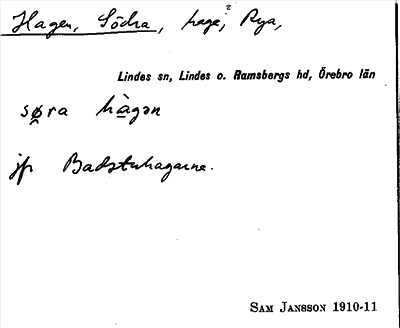 Hagen, Södra, hage, Rya,
Lindes sn, Lindes o. Ramsbergs hd, Örebro län
søra hàgən
jfr Badstuhagarna.
SAM JANSSON 1910-11